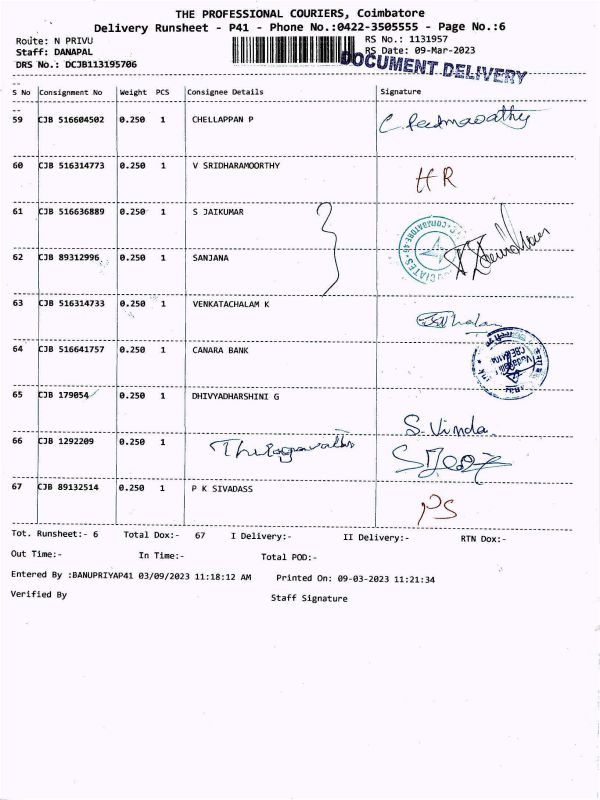 THE PROFESSIONAL COURIERS, Coimbatore
Delivery Runsheet - P41 - Phone No.:0422-3505555 - Page No.:6
Route: N PRIVU RS No.: 1131957
Staff: DANAPAL RS Date: 09-Mar-2023
DRS No.: DCJB113195706
DOCUMENT DELIVERY
S No Consignment No Weight PCS Consignee Details Signature
59 CJB 516604502 0.250 1 CHELLAPPAN P
60 CJB 516314773 0.250 1 V SRIDHARAMOORTHY HR
61 CJB 516636889 0.250 1 S JAIKUMAR
62 CJB 89312996 0.250 1 SANJANA
63 CJB 516314733 0.250 1 VENKATACHALAM K
64 CJB 516641757 0.250 1 CANARA BANK
65 CJB 179054 0.250 1 DHIVYADHARSHINI G
S. Vinda.
66 CJB 1292209 0.250 1
67 CJB 89132514 0.250 1 P K SIVADASS
PS
Tot. Runsheet:- 6 Total Dox:- 67 I Delivery:- II Delivery:- RTN Dox:-
Out Time:- In Time:- Total POD:-
Entered By :BANUPRIYAP41 03/09/2023 11:18:12 AM Printed On: 09-03-2023 11:21:34
Verified By Staff Signature